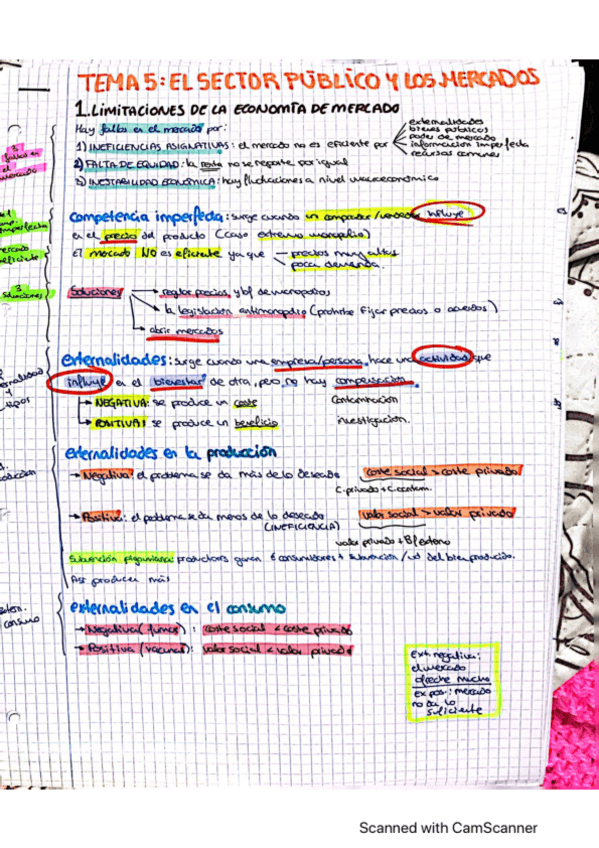 TEMA 5: EL SECTOR PÚBLICO Y LOS MERCADOS
1. LIMITACIONES DE LA ECONOMÍA DE MERCADO
Hay fallos en el mercado por:
externalidades
bienes públicos
poder de mercado
1) INEFICIENCIAS ASIGNATIVAS: el mercado no es eficiente por
información imperfecta
recursos comunes
2) FALTA DE EQUIDAD: la renta no se reparte por igual
3) INESTABILIDAD ECONÓMICA: hay fluctuaciones a nivel macroeconómico
competencia imperfecta: surge cuando un comprador/vendedor influye
en el precio del producto (caso extremo monopolio)
El mercado NO es eficiente ya que
precios muy altos
poca demanda.
Soluciones
regular precios y bf de monopolios
la legislación antimonopolio (prohibe fijar precios o acuerdos)
abrir mercados
externalidades: surge cuando una empresa/persona hace una actividad que
influye en el bienestar de otra, pero no hay compensación.
NEGATIVA: se produce un coste
contaminación
POSITIVAS: se produce un beneficio
investigación.
externalidades en la producción
Negativa: el problema se da más de lo deseado
coste social > coste privado
C. privado + C. contam.
Positiva: el problema se da menos de lo deseado
(INEFICIENCIA)
valor social > valor privado
valor privado + B
Subvención pigouviana: productores ganan € consumidores + subvención /ud del bien producido.
Así producen más
externalidades en el consumo
Negativa (fumar): coste social < coste privado
Positiva (vacunas): valor social < valor privado
Ext. negativa:
el mercado
ofrece mucho
ex pos.: mercado
no da lo
suficiente
fallos en
el
mercado
imperfecta
mercado
eficiente
3.
Soluciones
consumo
Scanned with CamScanner